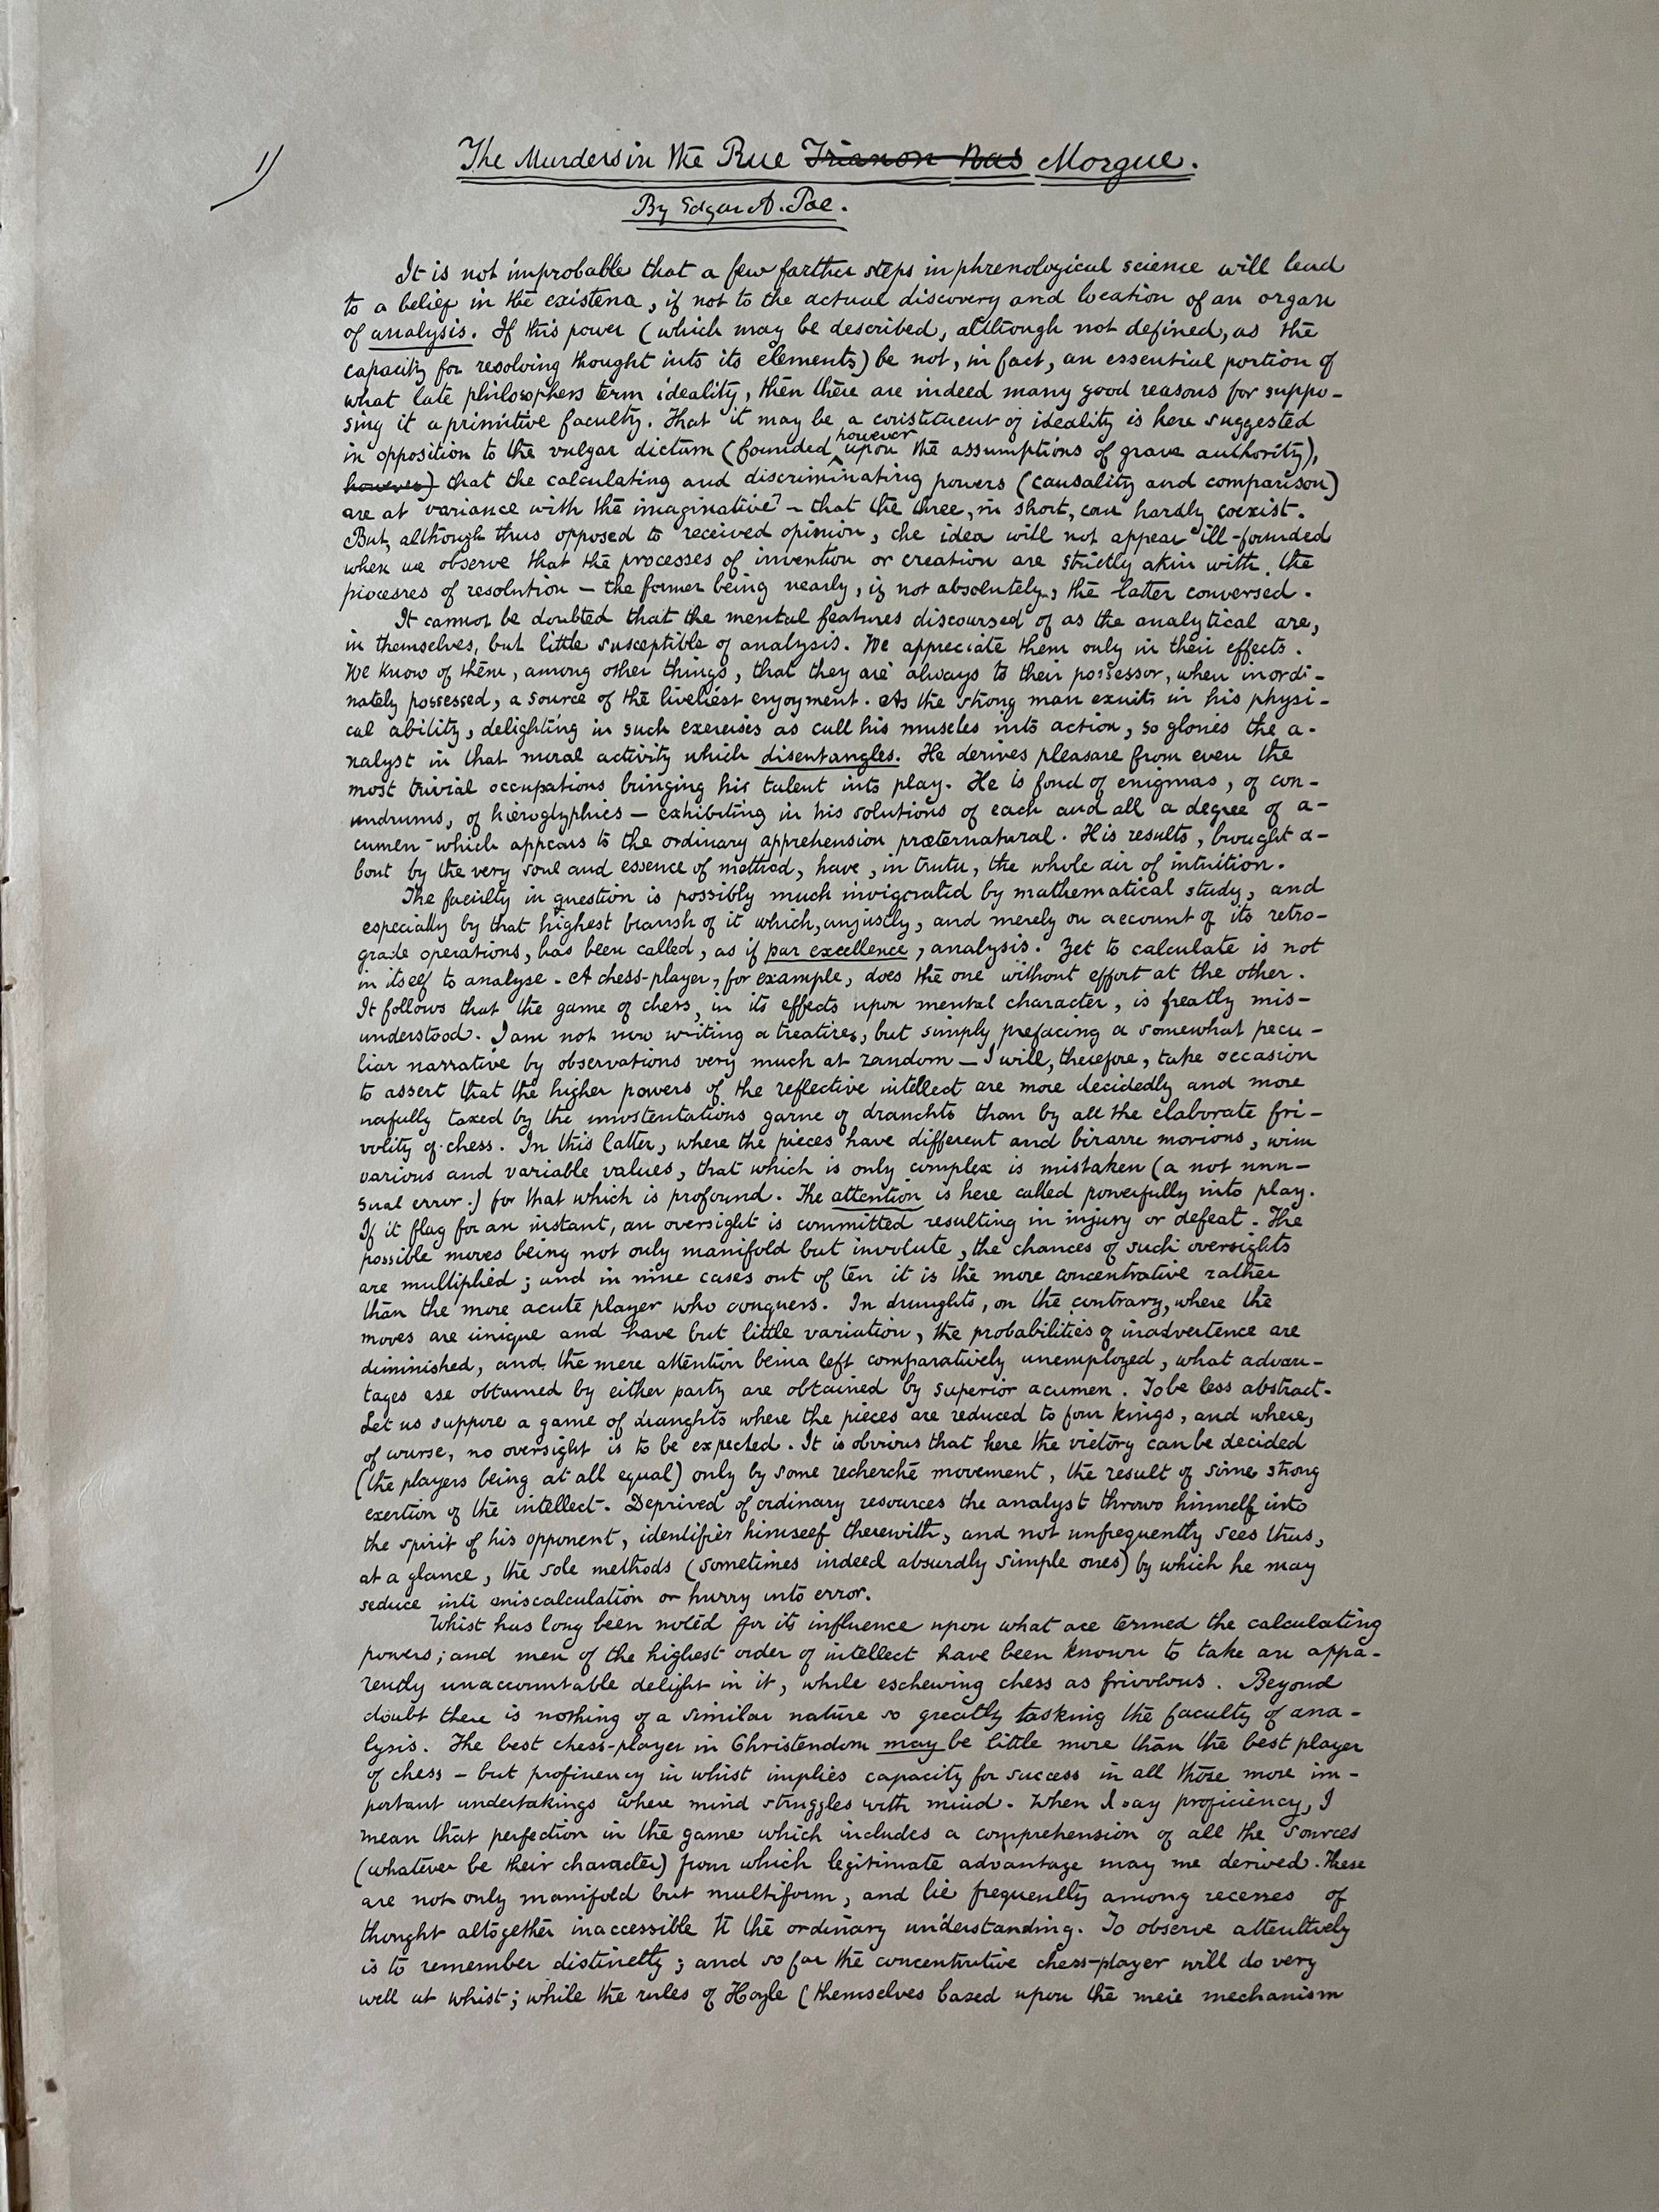 1)
The Murders in the Rue Trianon Bas Morgue.
By Edgar A. Poe.
It is not improbable that a few farther steps in phrenological science will lead
to a belief in the existence, if not to the actual discovery and location of an organ
of analysis. If this power (which may be described, although not defined, as the
capacity for resolving thought into its elements) be not, in fact, an essential portion of
what late philosophers term ideality, then there are indeed many good reasons for suppo-
sing it a primitive faculty. That it may be a constituent of ideality is here suggested
in opposition to the vulgar dictum (founded however upon the assumptions of grave authority),
however) that the calculating and discriminating powers (causality and comparison)
are at variance with the imaginative – that the three, in short, can hardly coexist.
But, although thus opposed to received opinion, the idea will not appear ill-founded
when we observe that the processes of invention or creation are strictly akin with the
processes of resolution – the former being nearly, if not absolutely, the latter conversed.
It cannot be doubted that the mental features discoursed of as the analytical are,
in themselves, but little susceptible of analysis. We appreciate them only in their effects.
We know of them, among other things, that they are always to their possessor, when inordi-
nately possessed, a source of the liveliest enjoyment. As the strong man exults in his physi-
cal ability, delighting in such exercises as call his muscles into action, so glories the a-
nalyst in that moral activity which disentangles. He derives pleasure from even the
most trivial occupations bringing his talent into play. He is fond of enigmas, of con-
undrums, of hieroglyphics – exhibiting in his solutions of each and all a degree of a-
cumen which appears to the ordinary apprehension præternatural. His results, brought a-
bout by the very soul and essence of method, have, in truth, the whole air of intuition.
The faculty in question is possibly much invigorated by mathematical study, and
especially by that highest branch of it which, unjustly, and merely on account of its retro-
grade operations, has been called, as if par excellence, analysis. Yet to calculate is not
in itself to analyse. A chess-player, for example, does the one without effort at the other.
It follows that the game of chess, in its effects upon mental character, is greatly mis-
understood. I am not now writing a treatise, but simply prefacing a somewhat pecu-
liar narrative by observations very much at random – I will, therefore, take occasion
to assert that the higher powers of the reflective intellect are more decidedly and more
usefully taxed by the unostentatious game of draughts than by all the elaborate fri-
volity of chess. In this latter, where the pieces have different and bizarre motions, with
various and variable values, that which is only complex is mistaken (a not unu-
sual error) for that which is profound. The attention is here called powerfully into play.
If it flag for an instant, an oversight is committed resulting in injury or defeat. The
possible moves being not only manifold but involute, the chances of such oversights
are multiplied; and in nine cases out of ten it is the more concentrative rather
than the more acute player who conquers. In draughts, on the contrary, where the
moves are unique and have but little variation, the probabilities of inadvertence are
diminished, and, the mere attention being left comparatively unemployed, what advan-
tages are obtained by either party are obtained by superior acumen. To be less abstract.
Let us suppose a game of draughts where the pieces are reduced to four kings, and where,
of course, no oversight is to be expected. It is obvious that here the victory can be decided
(the players being at all equal) only by some recherché movement, the result of some strong
exertion of the intellect. Deprived of ordinary resources the analyst throws himself into
the spirit of his opponent, identifies himself therewith, and not unfrequently sees thus,
at a glance, the sole methods (sometimes indeed absurdly simple ones) by which he may
seduce into miscalculation or hurry into error.
Whist has long been noted for its influence upon what are termed the calculating
powers; and men of the highest order of intellect have been known to take an appa-
rently unaccountable delight in it, while eschewing chess as frivolous. Beyond
doubt there is nothing of a similar nature so greatly tasking the faculty of ana-
lysis. The best chess-player in Christendom may be little more than the best player
of chess – but proficiency in whist implies capacity for success in all those more im-
portant undertakings where mind struggles with mind. When I say proficiency, I
mean that perfection in the game which includes a comprehension of all the sources
(whatever be their character) from which legitimate advantage may me derived. These
are not only manifold but multiform, and lie frequently among recesses of
thought altogether inaccessible to the ordinary understanding. To observe attentively
is to remember distinctly; and so far the concentrative chess-player will do very
well at whist; while the rules of Hoyle (themselves based upon the mere mechanism